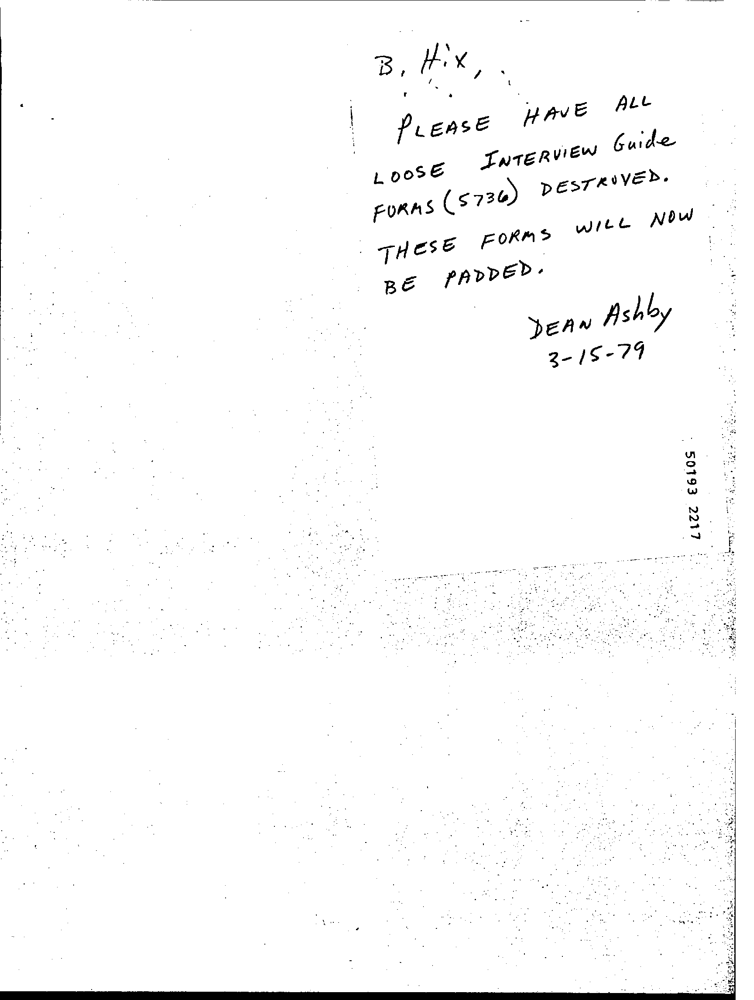 B. Hix,
PLEASE HAVE ALL
LOOSE INTERVIEW Guide
FORMS (5736) DESTROYED.
THESE FORMS WILL NOW
BE PADDED.
DEAN Ashby
3-15-79
50193 2217